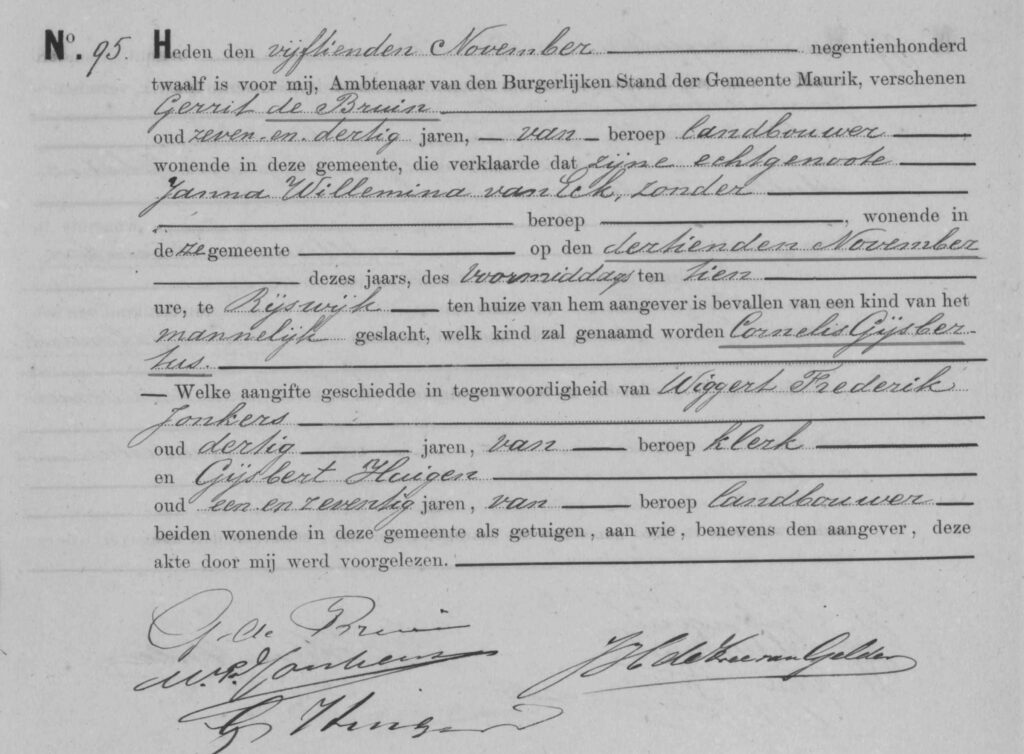 No. 95. Heden den vijftienden November negentienhonderd
twaalf is voor mij, Ambtenaar van den Burgerlijken Stand der Gemeente Maurik, verschenen
Gerrit de Bruin
oud zeven-en-dertig jaren, van beroep landbouwer
wonende in deze gemeente, die verklaarde dat zijne echtgenoote
Janna Willemina van Eck, zonder
beroep , wonende in
deze gemeente op den dertienden November
dezes jaars, des voormiddags ten tien
ure, te Rijswijk ten huize van hem aangever is bevallen van een kind van het
mannelijk geslacht, welk kind zal genaamd worden Cornelis Gijsber-
tus.
— Welke aangifte geschiedde in tegenwoordigheid van Wiggert Frederik
Jonkers
oud dertig jaren, van beroep klerk
en Gijsbert Huigen
oud een en zeventig jaren, van beroep landbouwer
beiden wonende in deze gemeente als getuigen, aan wie, benevens den aangever, deze
akte door mij werd voorgelezen.
G. de Bruin
W. F. Jonkers
JH de Kree van Gelder
G Huigen